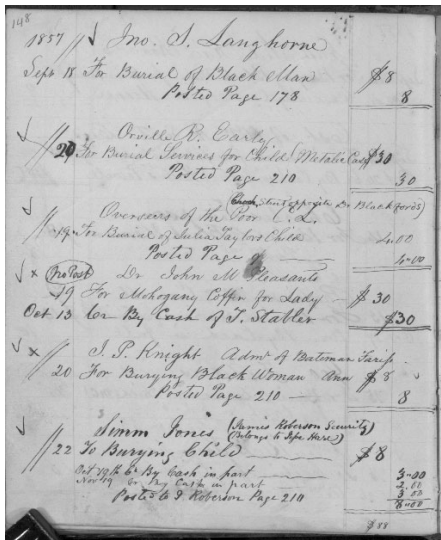 148
1857 // ✓ Jno. S. Langhorne
Sept 18 For Burial of Black Man $8
Posted Page 178 8
✓ Orville R. Early
// 20 For Burial Services for Child (Metalic Case) $30
Posted Page 210 30
(Church Street opposite Dr Blackfords)
✓ Overseers of the Poor C. L.
// 19 For Burial of Julia Taylors Child 4.00
Posted Page 4.00
✓ x (No Post) Dr John M Pleasants
// 19 For Mohogany Coffin for Lady — $30
Oct 13 Cr By Cash of T. Stabler $30
✓ x J. P. Knight Admr of Bateman
// 20 For Burying Black Woman Ann $8
Posted Page 210 — 8
✓ Simm Jones (James Roberson Security)
(Belongs to Jese Hare)
// 22 To Burying Child $8
Oct 19th Cr By Cash in part 3.00
Nov 19 Cr By Cash in part 2.00
3 00
Posted to J Roberson Page 210 8.00
$88